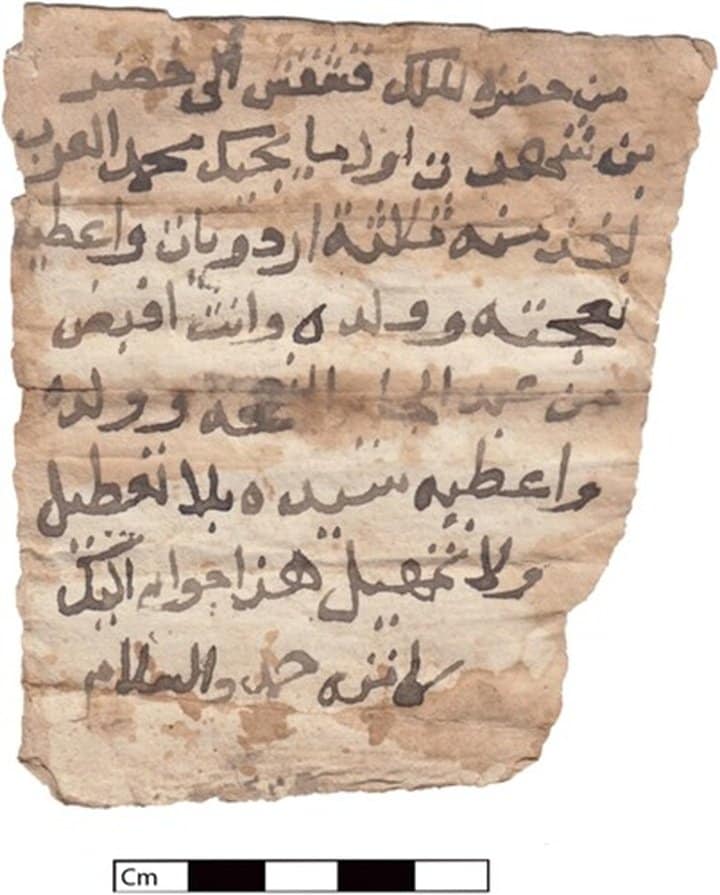 من حضره الملك قشقش الى خضر
بن شهد اول ما يجيك محمد العرب
ثلاثة اردويات واعطيه
نعجته وولده وانت اقبض
من عبد النعجه وولده
واعطيه سيده بلا تعطيل
ولا تمهيل هذا جوابه اليك
كاتبه حمد والسلام